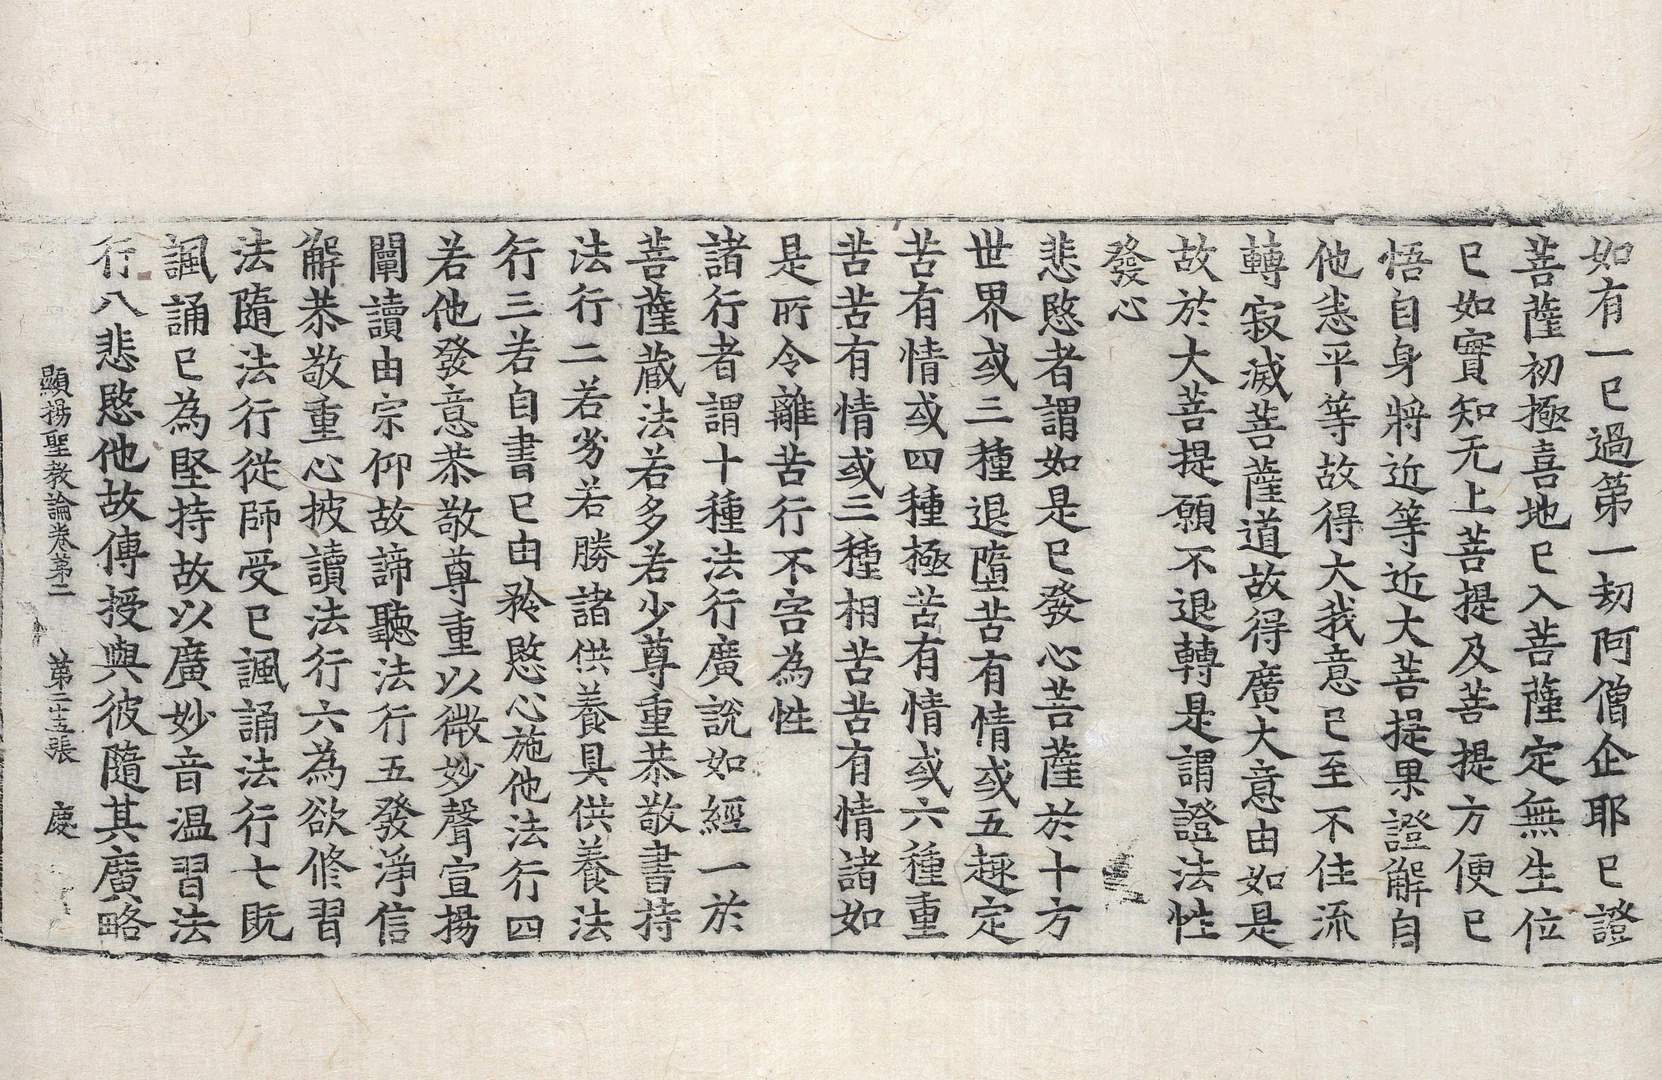 如有一已過第一劫阿僧企耶已證
菩薩初極喜地已入菩薩定無生位
已如實知无上菩提及菩提方便已
悟自身將近等近大菩提果證解自
他恙平等故得大我意已至不住流
轉寂滅菩薩道故得廣大意由如是
故於大菩提願不退轉是謂證法性
發心
悲愍者謂如是已發心菩薩於十方
世界或三種退墮苦有情或五趣定
苦有情或四種極苦有情或六種重
苦苦有情或三種相苦苦有情諸如
是所令離苦行不害為性
諸行者謂十種法行廣說如經一於
菩薩蔵法若多若少尊重恭敬書持
法行二若劣若勝諸供養具供養法
行三若自書已由矜愍心施他法行四
若他發意恭敬尊重以微妙聲宣揚
闡讀由宗仰故諦聽法行五發淨信
解恭敬重心披讀法行六為欲修習
法隨法行從師受已諷誦法行七既
諷誦已為堅持故以廣妙音温習法
行八悲愍他故傳授與彼隨其廣略
顯揚聖教論卷第二 第二十五張 慶